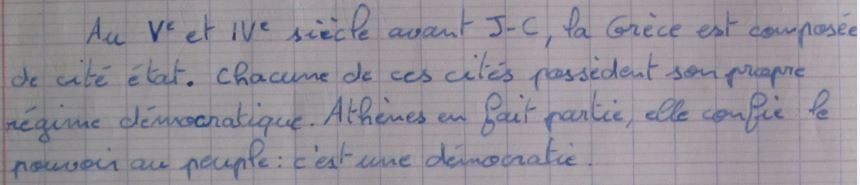 Au Vᵉ et IVᵉ siècle avant J-C, la Grèce est composée
de cité état. Chacune de ces cités possèdent son propre
régime démocratique. Athènes en fait partie, elle confie le
pouvoir au peuple : c'est une démocratie.